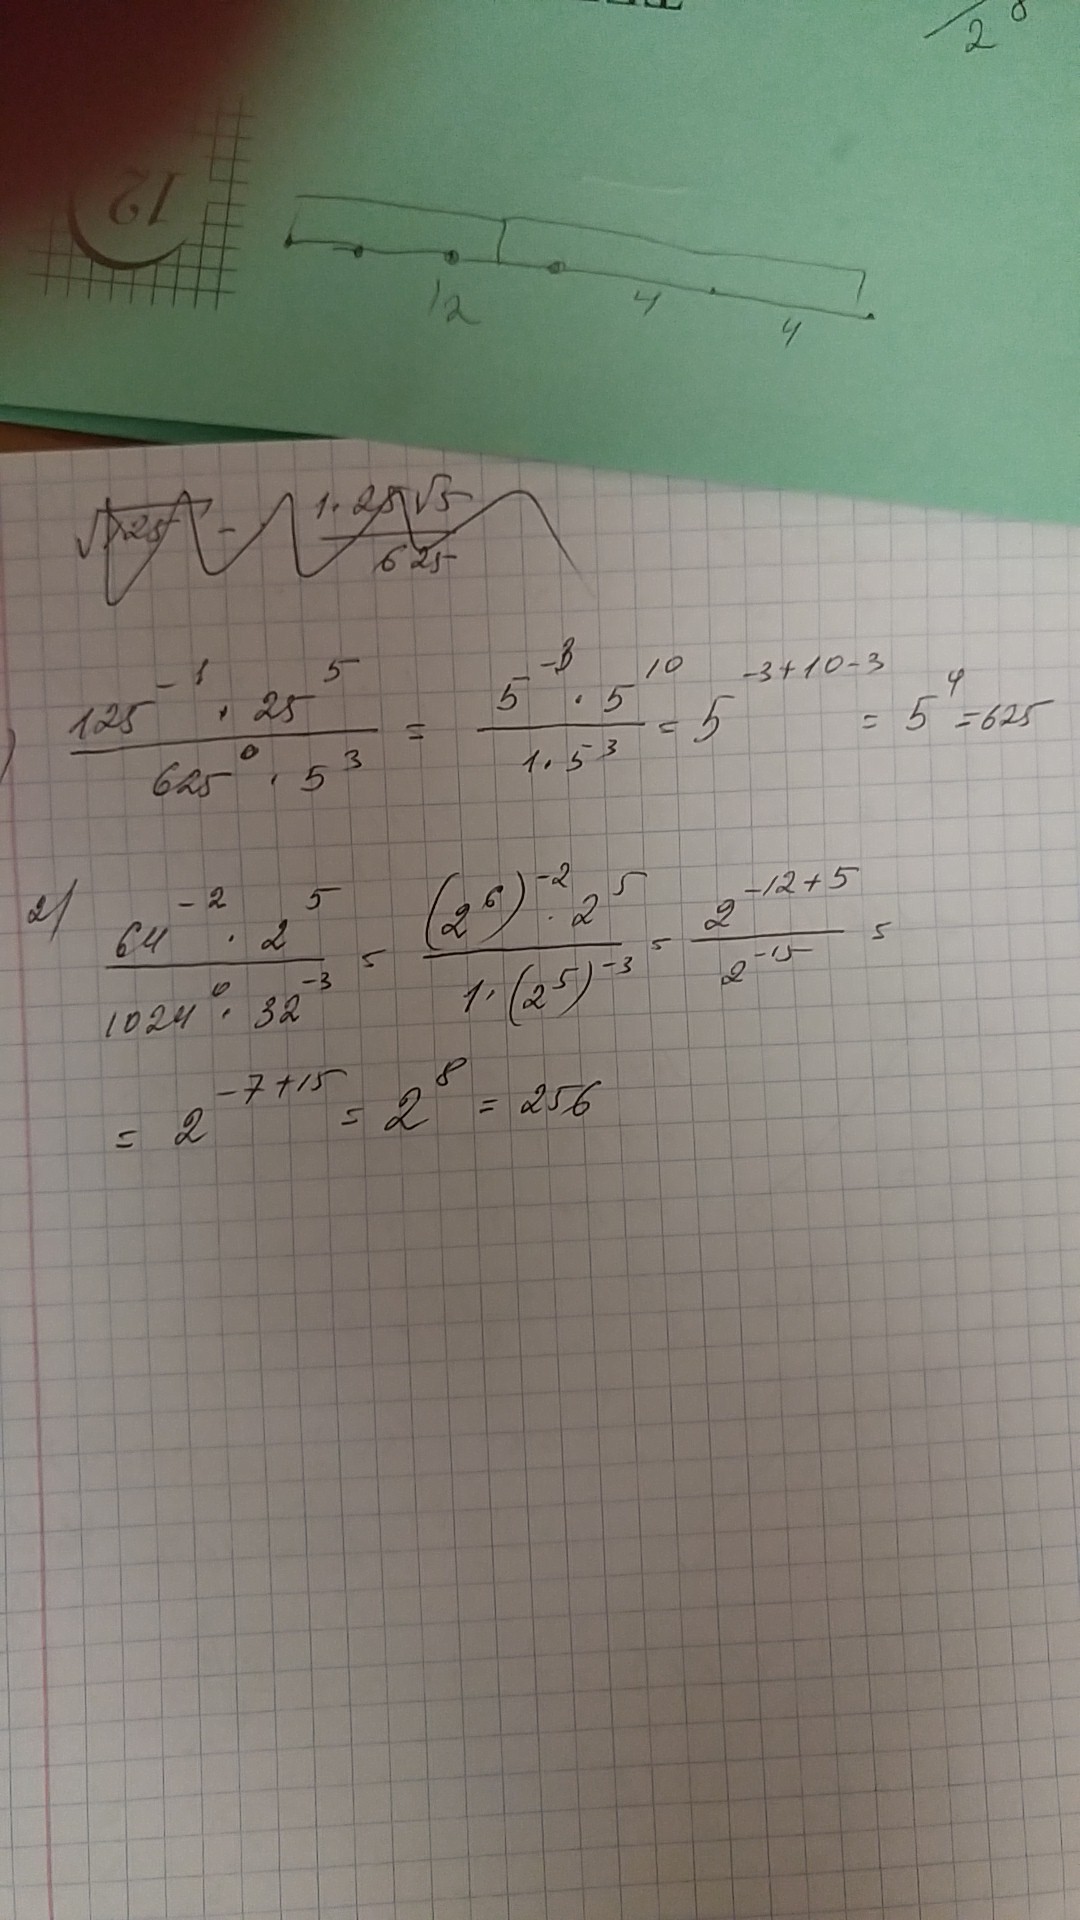 2⁸
12
12 4 4
√125 - 1·25√5/625
) (125⁻¹ · 25⁵)/(625⁰ · 5³) = (5⁻³ · 5¹⁰)/(1·5³) = 5⁻³⁺¹⁰⁻³ = 5⁴ = 625
2) (64⁻² · 2⁵)/(1024⁰ · 32⁻³) = ((2⁶)⁻² · 2⁵)/(1·(2⁵)⁻³) = 2⁻¹²⁺⁵/2⁻¹⁵ =
= 2⁻⁷⁺¹⁵ = 2⁸ = 256